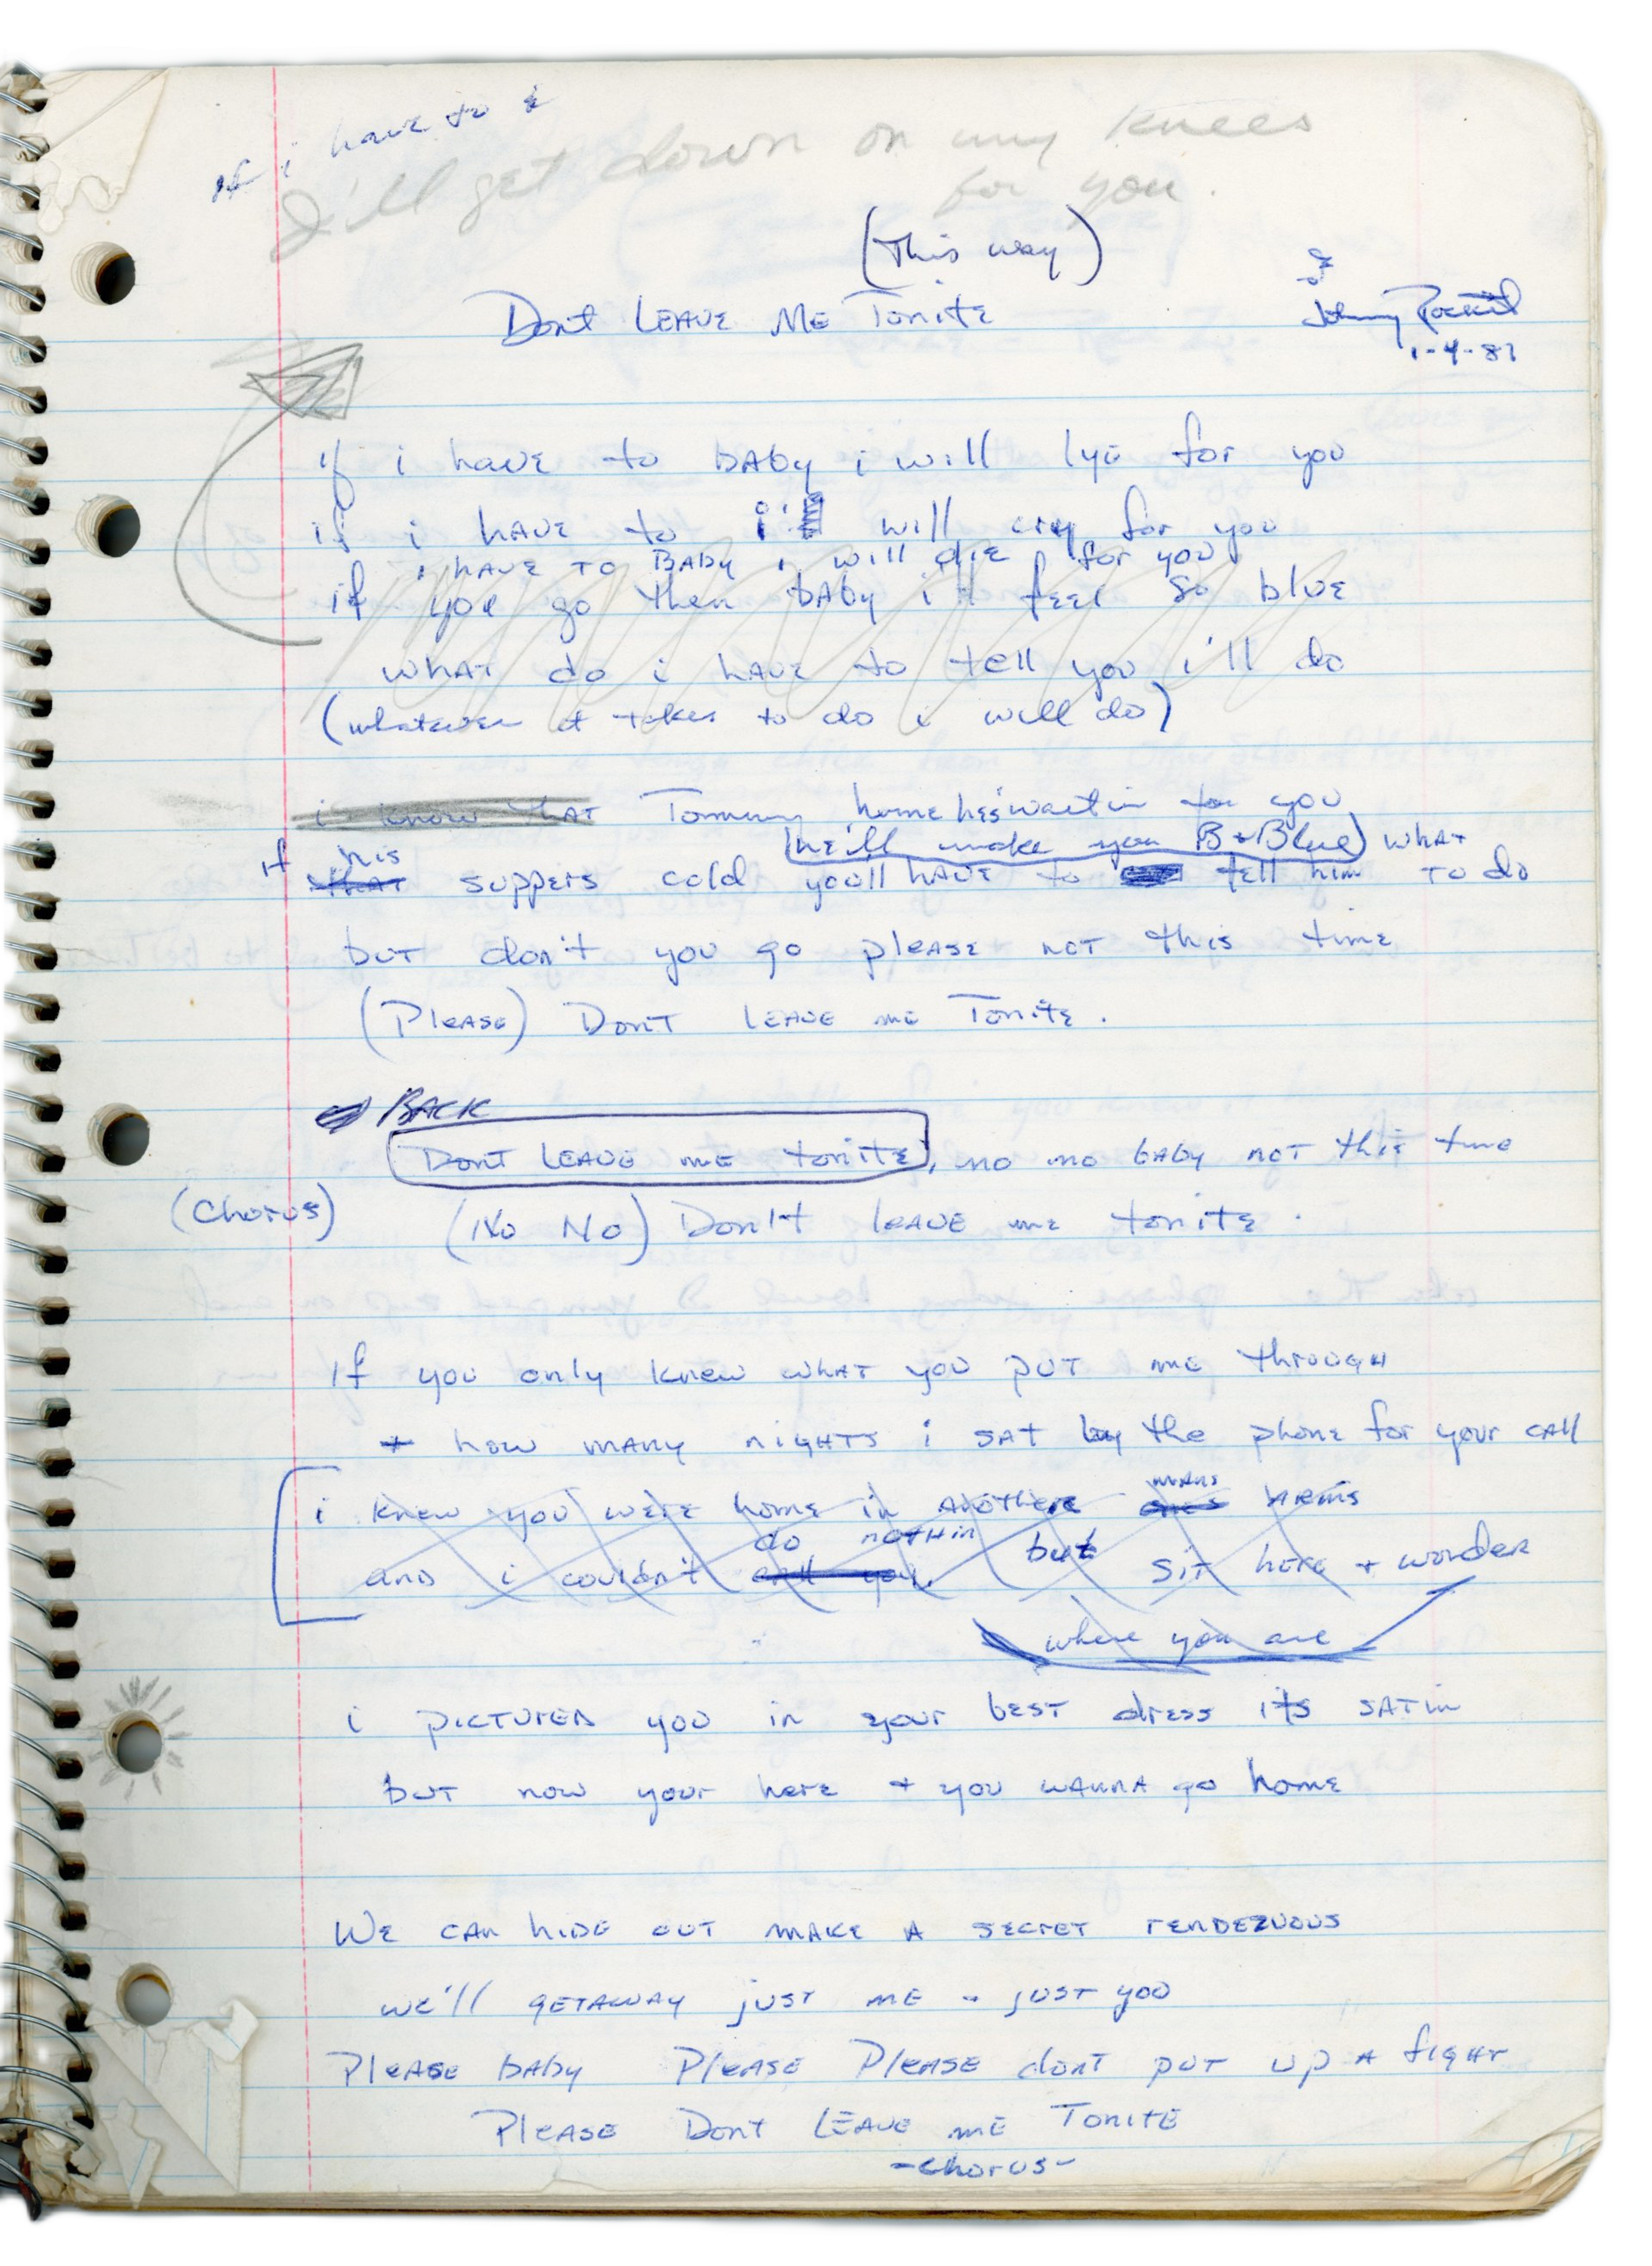 If i have to &
I'll get down on my knees
for you.
(This way)
Dont LEAVE ME Tonite
Johnny
1-4-87
if i have to baby i will lye for you
if i have to i will cry for you
i have to Baby i will die for you
if you go then baby i'll feel so blue
what do i have to tell you i'll do
(whatever it takes to do i will do)
i know that Tommy home hes waitin for you
(he'll make you B+Blue) what
if his
that suppers cold you'll have to tell him to do
but don't you go please not this time
(Please) Dont leave me Tonite.
BACK
Dont leave me tonite, no no baby not this time
(Chorus) (No No) Don't leave me tonite.
If you only knew what you put me through
+ how many nights i sat by the phone for your call
mans
i knew you were home in another ones arms
do nothin
and i couldn't call you but sit here + wonder
where you are
i pictured you in your best dress its satin
but now your here + you wanna go home
We can hide out make a secret rendezvous
we'll getaway just me + just you
Please baby Please Please dont put up a fight
Please Dont Leave me Tonite
-chorus-